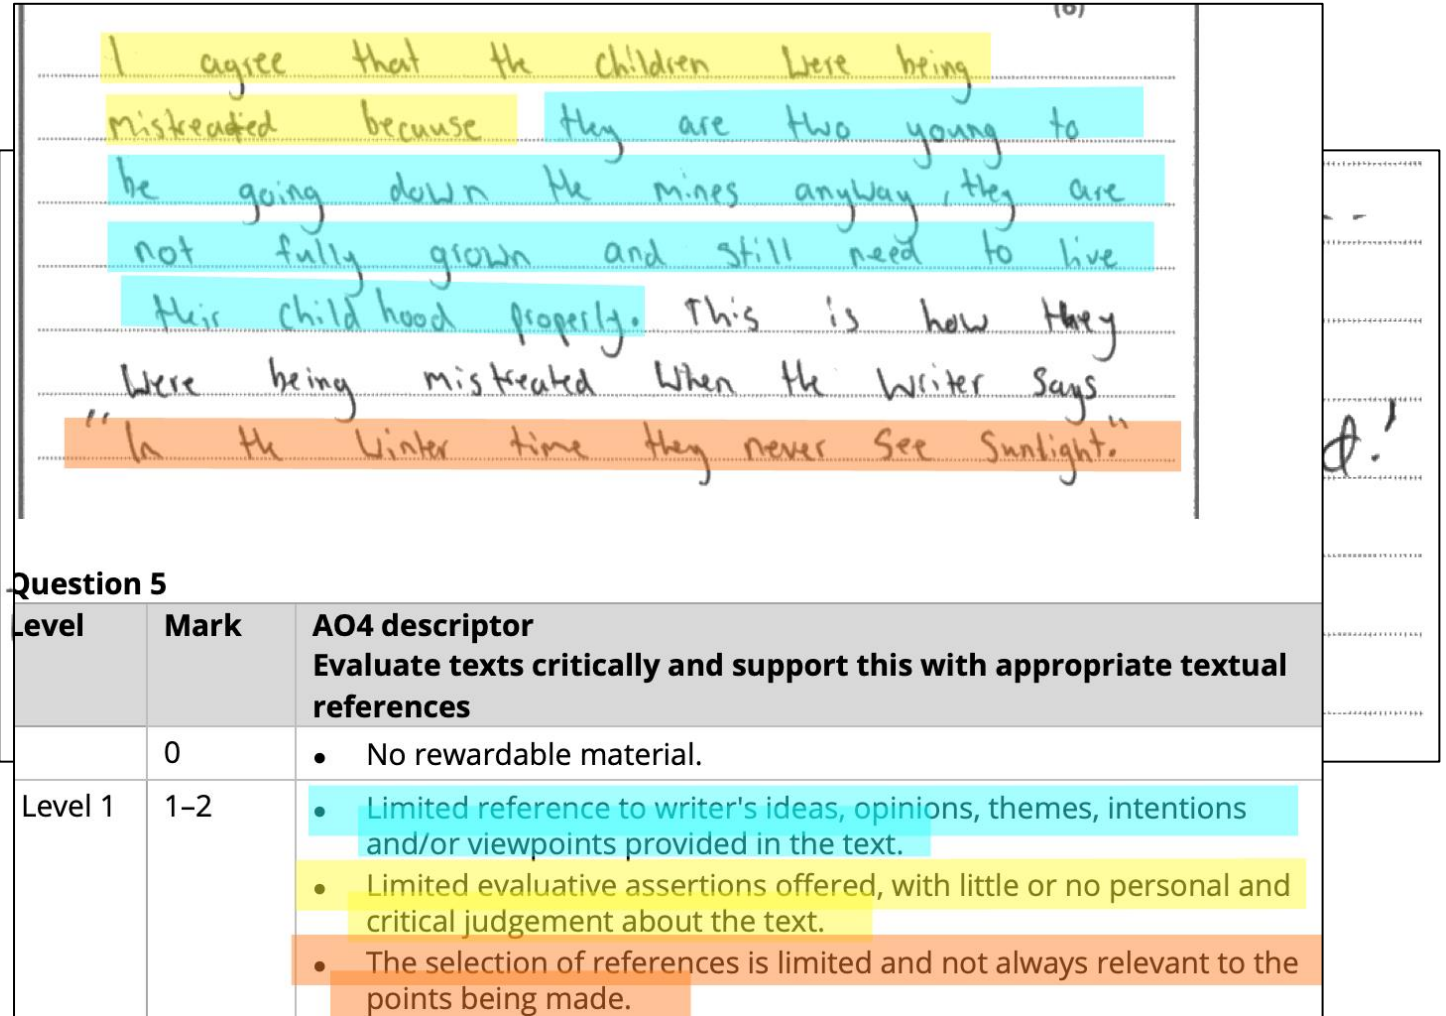 (6)
I agree that the children were being
mistreated because they are two young to
be going down the mines anyway, they are
not fully grown and still need to live
their child hood properly. This is how they
were being mistreated when the writer says
"In the winter time they never see sunlight."
d!'
Question 5
Level Mark AO4 descriptor
Evaluate texts critically and support this with appropriate textual
references
0 • No rewardable material.
Level 1 1–2 • Limited reference to writer's ideas, opinions, themes, intentions
and/or viewpoints provided in the text.
• Limited evaluative assertions offered, with little or no personal and
critical judgement about the text.
• The selection of references is limited and not always relevant to the
points being made.